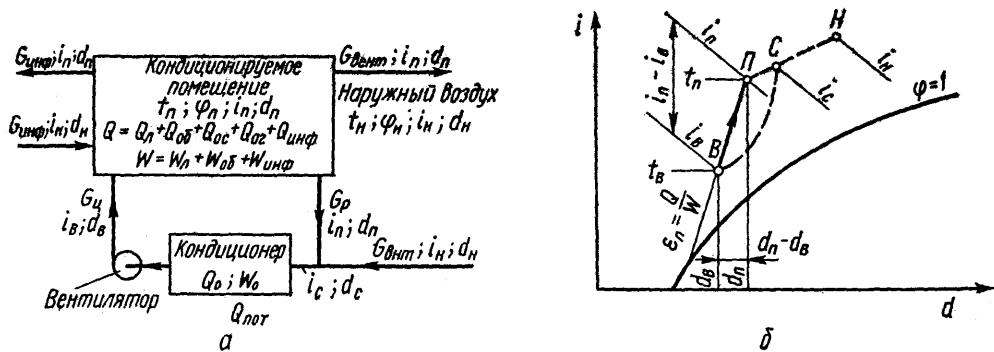 Gинф; iп; dп
Gинф; iн; dн
Кондиционируемое
помещение
tп; φп; iп; dп
Q = Qл+Qоб+Qос+Qог+Qинф
W = Wл+Wоб+Wинф
Gвент; iп; dп
Наружный воздух
tн; φн; iн; dн
Gц
iв; dв
Gр
iп; dп
Gвнт; iн; dн
Кондиционер
Q₀; W₀
iс; dс
Вентилятор
Qпот
а
i
iп
П
С
Н
iн
iс
tп
iп – iв
iв
В
tв
φ=1
εп = Q/W
dв
dп
dп – dв
d
б